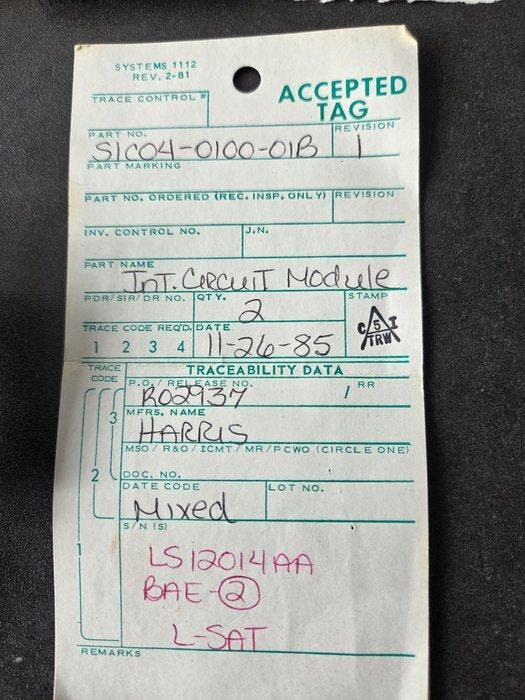 SYSTEMS 1112
REV. 2-81
ACCEPTED
TAG
TRACE CONTROL #
PART NO.
REVISION
S1C04-0100-01B
1
PART MARKING
PART NO. ORDERED (REC. INSP. ONLY)
REVISION
INV. CONTROL NO.
J.N.
PART NAME
INT. CIRCUIT Module
PDR/SIR/DR NO.
QTY.
STAMP
2
C 5 I
TRW
TRACE CODE REQ'D.
DATE
1 2 3 4
11-26-85
TRACE
CODE
TRACEABILITY DATA
P.O./RELEASE NO.
/ RR
R02937
MFRS. NAME
3
HARRIS
MSO/R&O/ICMT/MR/PCWO (CIRCLE ONE)
2
DOC. NO.
DATE CODE
LOT NO.
Mixed
S/N (S)
1
LS12014AA
BAE-2
L-SAT
REMARKS